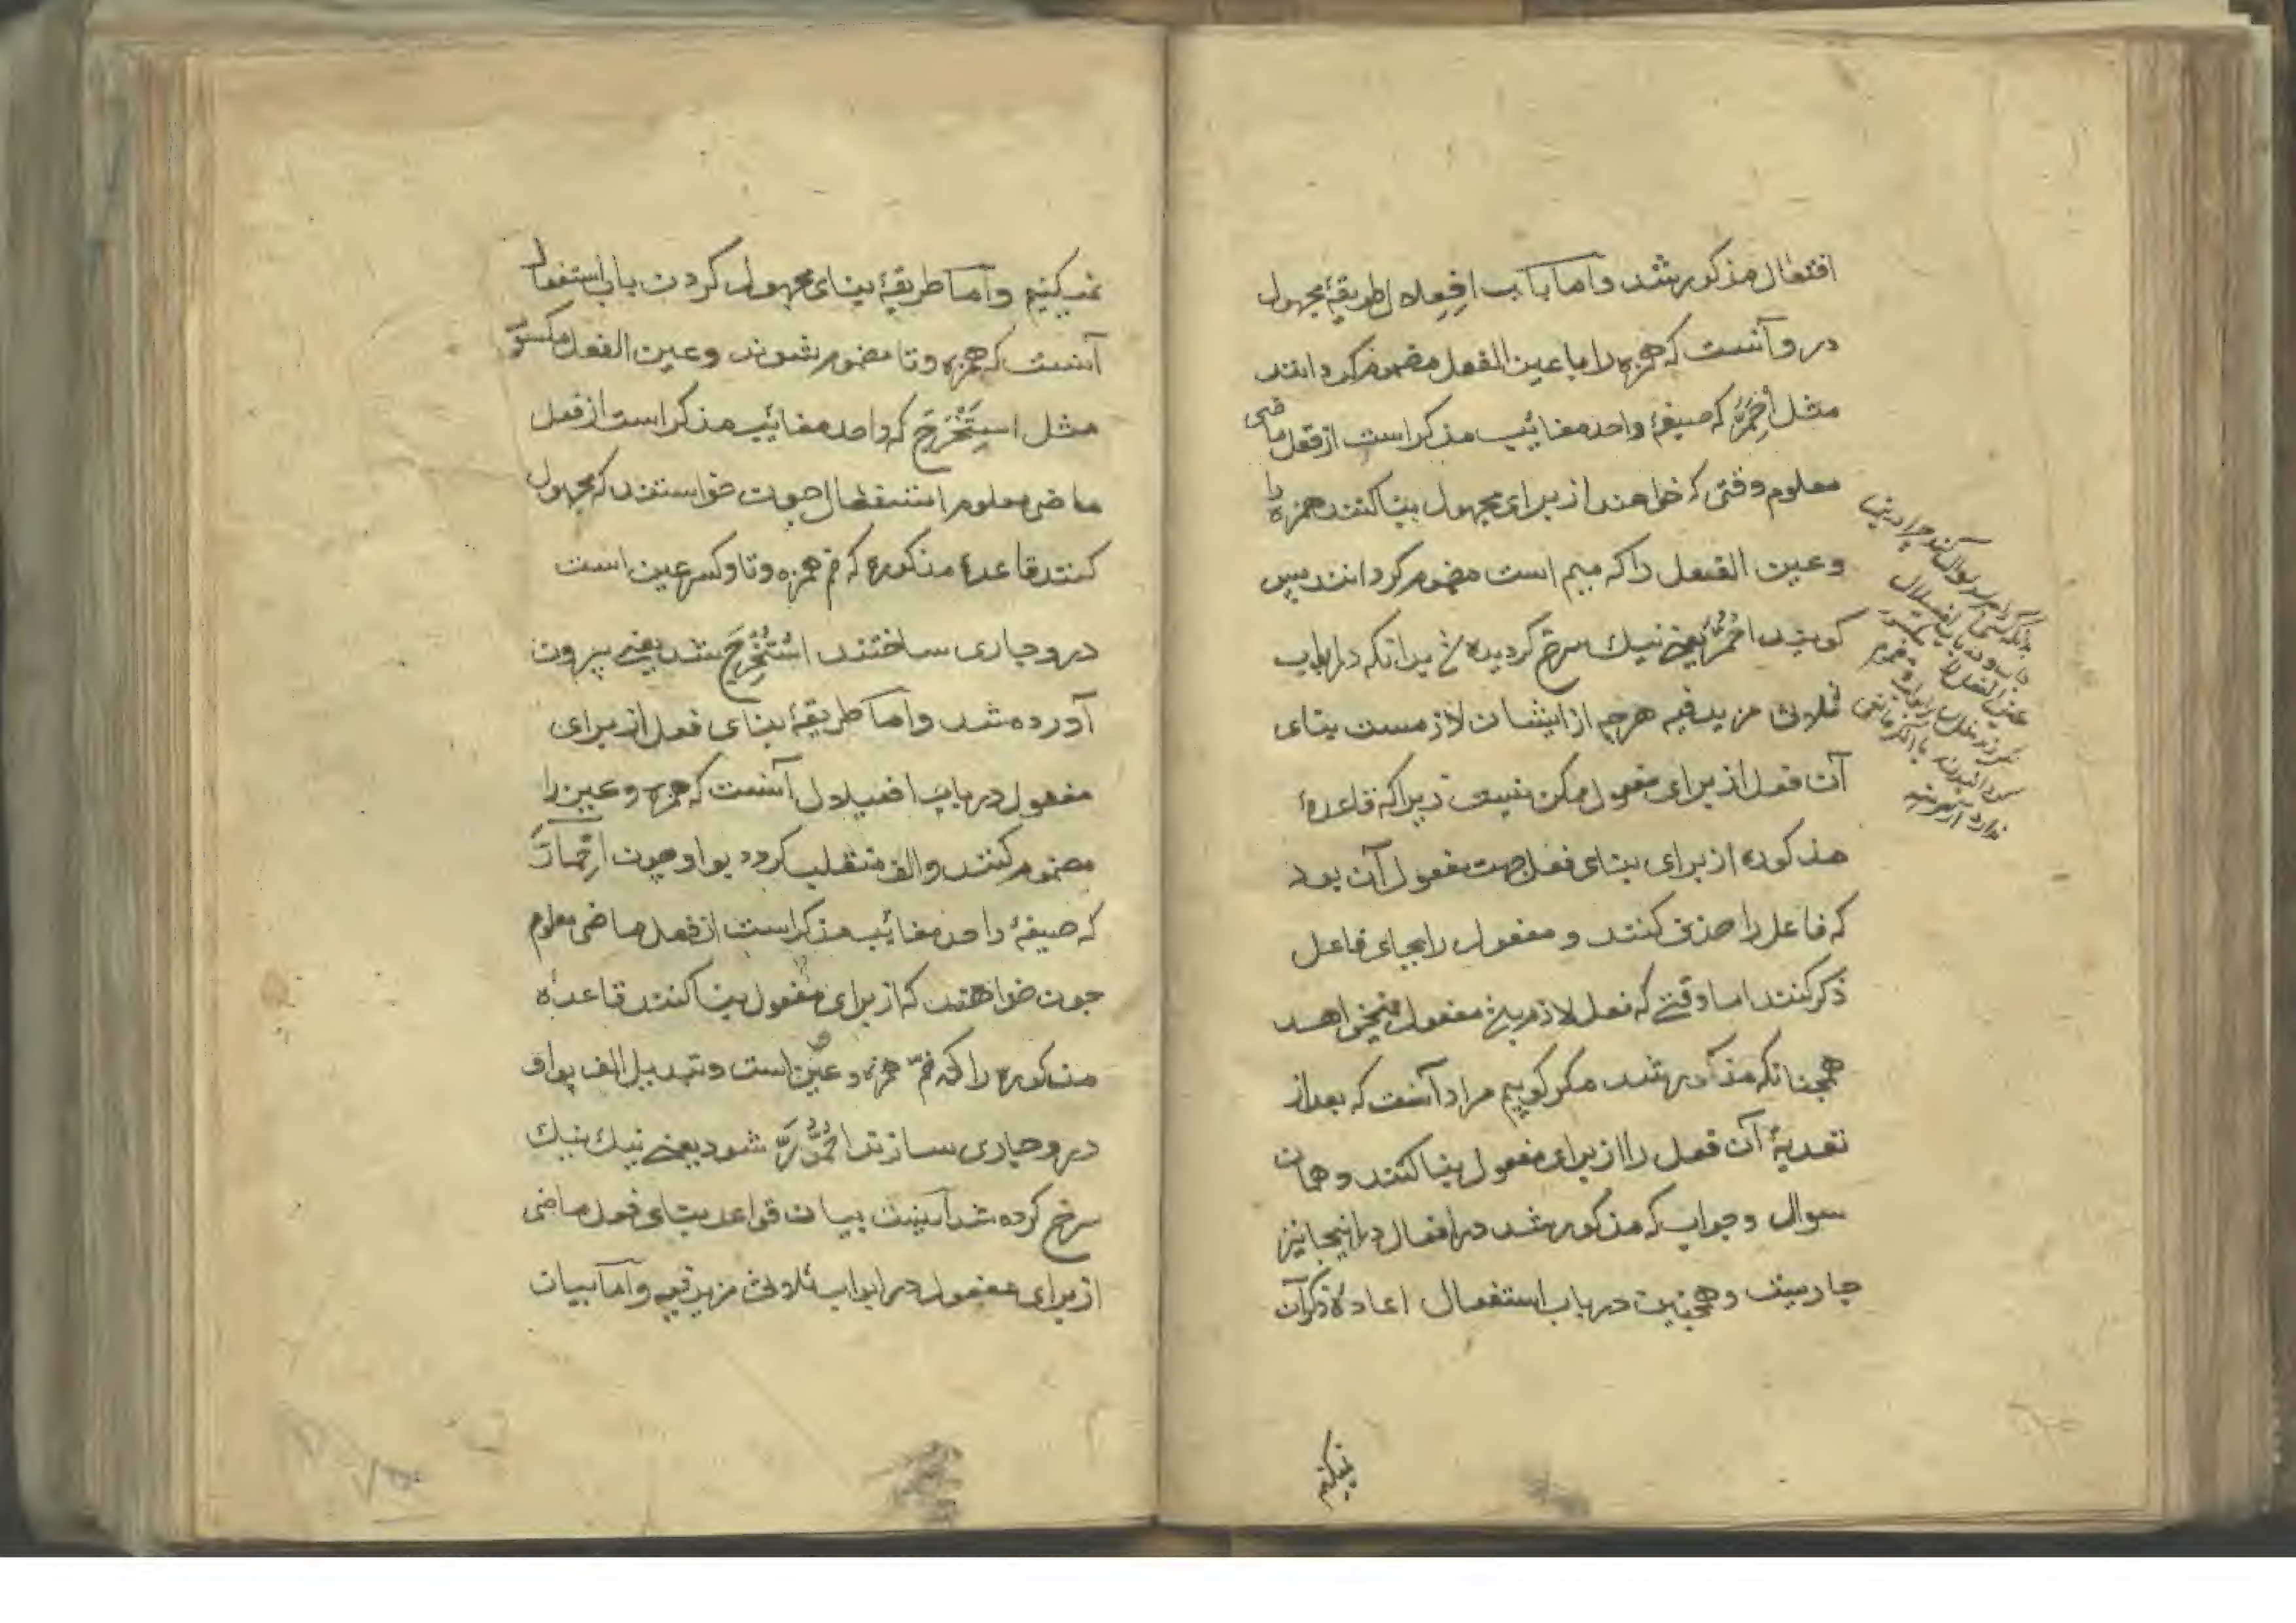 افتعال مذکور شد و اما باب افعلال طریقهٔ مجهول
در و آنست که همزه را با عین الفعل مضموم کردانند
مثل اِحْمَرَّ که صیغهٔ واحد مغائب مذکر است از فعل ماضی
معلوم وقتی که خواهند از برای مجهول بنا کنند همزه را
و عین الفعل را که میم است مضموم کردانند پس
کویند اُحْمُرَّ یعنی نیك سرخ کردیده شد بدانکه در ابواب
ثلاثی مزید فیه هر چه از ایشان لازمست بنای
آن فعل از برای مفعول ممکن نیست زیرا که قاعدهٔ
مذکوره از برای بنای فعل جهت مفعول آن بود
که فاعل را حذف کنند و مفعول را بجای فاعل
ذکر کنند اما وقتی که فعل لازم مفعول نمیخواهد
همچنانکه مذکور شد مکر کوییم مراد آنست که بعد از
تعدیهٔ آن فعل را از برای مفعول بنا کنند و همان
سوال و جواب که مذکور شد در افعال در اینجا نیز
جاریست و همچنین در باب استفعال اعادهٔ ذکر آن
نمیکنیم
نمیکنیم و اما طریقهٔ بنای مجهول کردن باب استفعال
آنست که همزه و تا مضموم شوند و عین الفعل مکسور
مثل اِسْتَخْرَجَ که واحد مغائب مذکر است از فعل
ماضی معلوم استفعال چون خواستند که مجهول
کنند قاعدهٔ مذکوره که ضم همزه و تا و کسر عین است
در و جاری ساختند اُسْتُخْرِجَ شد یعنی بیرون
آورده شد و اما طریقهٔ بنای فعل از برای
مفعول در باب افعیلال آنست که همزه و عین را
مضموم کنند و الف منقلب کردد بواو چون اِحْمَارَّ
که صیغهٔ واحد مغائب مذکر است از فعل ماضی معلوم
چون خواهند که از برای مفعول بنا کنند قاعدهٔ
مذکوره را که ضمّ همزه و عین است و تبدیل الف بواو
در و جاری سازند اُحْمُورَّ شود یعنی نیك نیك
سرخ کرده شد اینست بیان قواعد بنای فعل ماضی
از برای مفعول در ابواب ثلاثی مزید فیه و اما بیان